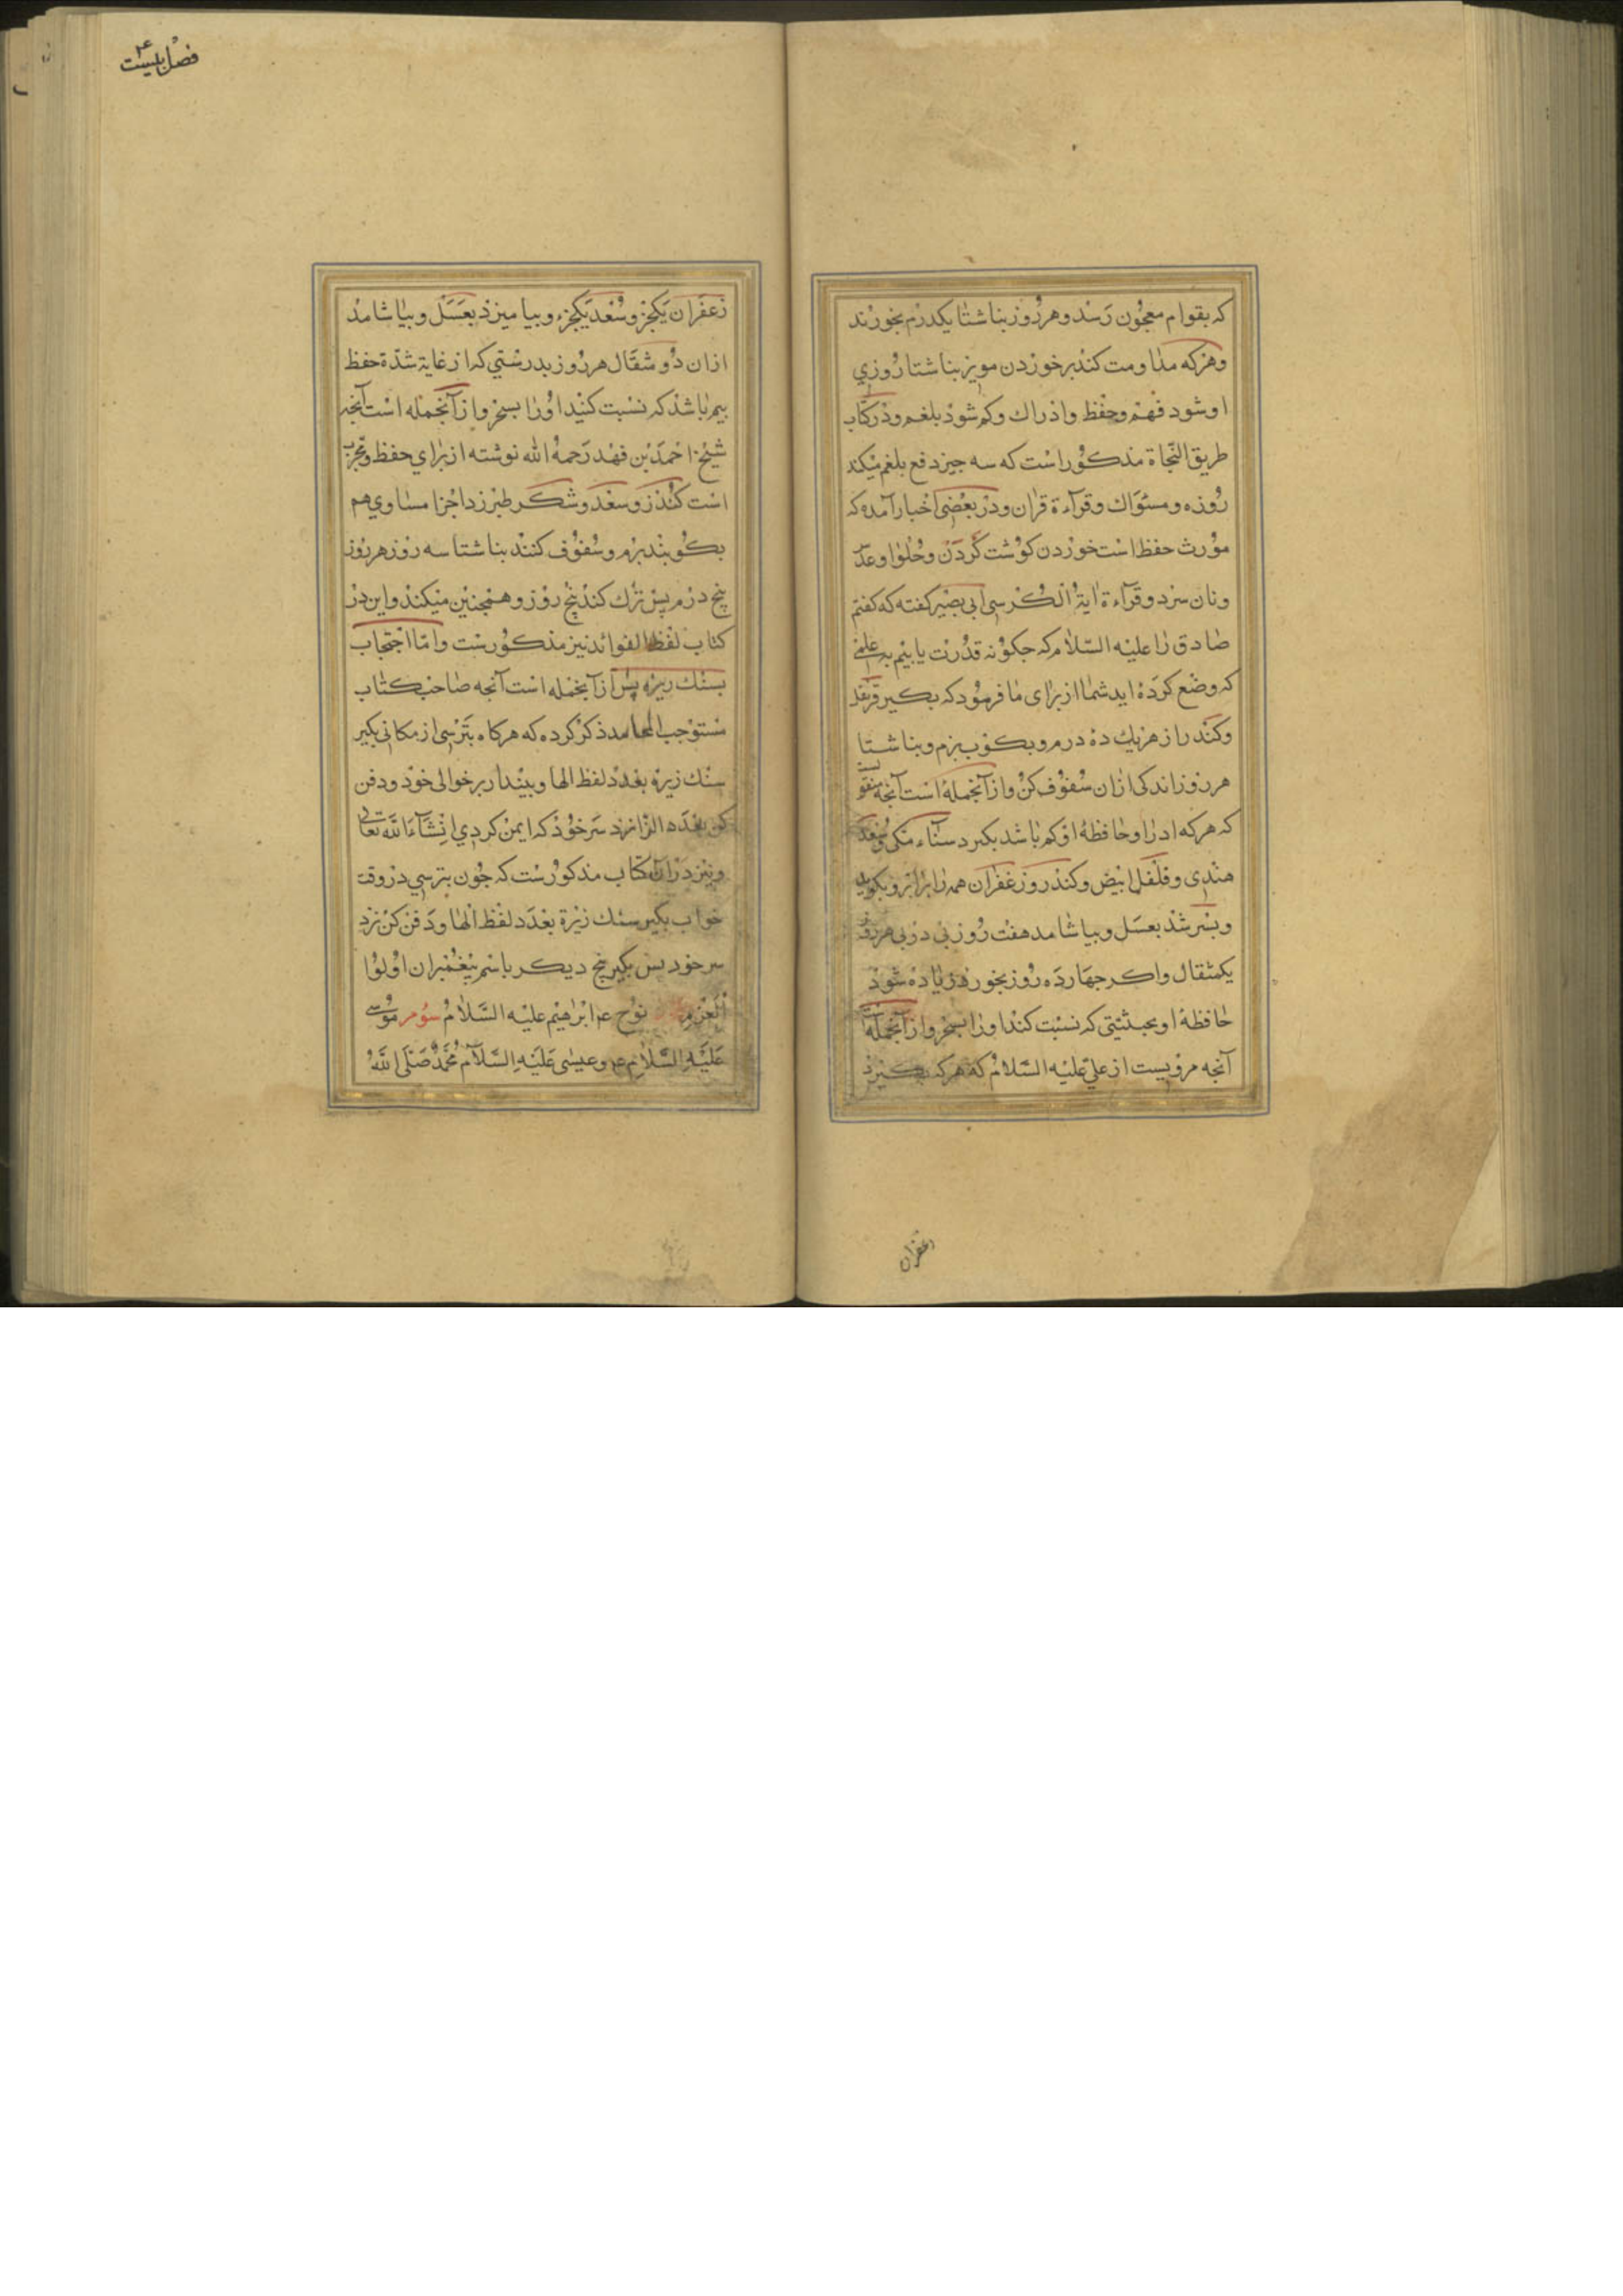 که بقوام معجون رسد و هر روز بناشتا یکدرم بخورند
و هرکه مداومت کند بر خوردن مویز بناشتا روزی
او شود فهم و حفظ و ادراك و کم شود بلغم و در کتاب
طریق النجاة مذکور است که سه چیز دفع بلغم میکند
روزه و مسواك و قرآءة قران و در بعضی اخبار آمده که
مورث حفظ است خوردن کوشت کردن و حلوا و عدس
و نان سرد و قرآءة آیة الکرسی ابی بصیر کفته که کفتم
صادق را علیه السلام که چکونه قدرت یابیم بر علمی
که وضع کرده اید شما از برای ما فرمود که بکیر قرنفل
و کندر از هریك ده درم و بکوب بنرم و بناشتا
هر روز اندکی ازان سفوف کن و از آنجمله است آنچه منقولست
که هرکه ادراو حافظهٔ او کم باشد بکیرد سناء مکی و سعد
هندی و فلفل ابیض و کندر و زعفران همه را برابر و بکوبد
و بسرشد بعسل و بیاشامد هفت روز پی در پی هر روز
یکمثقال و اکر چهارده روز بخورد زیاده شود
حافظهٔ او بحیثیتی که نسبت کند اورا بسحر و از آنجمله است
آنچه مرویست از علی علیه السلام که هرکه بکیرد
زعفران
فصل بیست
زعفران یکجزو و سعد یکجزء و بیامیزد بعسل و بیاشامد
ازان دو مثقال هر روز بدرستی که از غایة شدّة حفظ
بیم باشد که نسبت کنید اورا بسحر و از آنجمله است آنچه
شیخ احمد بن فهد رحمه الله نوشته از برای حفظ و مجرب
است کندر و سعد و شکر طبرزد اجزا مساوی هم
بکوبند بنرم و سفوف کنند بناشتا سه روز هر روز
پنج درم پس ترك کند پنج روز و همچنین میکند و این در
کتاب لفظ الفوائد نیز مذکورست و اما احتجاب
بسنك ریزه پس از آنجمله است آنچه صاحب کتاب
مستوجب المحامد ذکر کرده که هرکاه بترسی از مکانی بکیر
سنك ریزه بعدد لفظ الها و بیندار بر حوالی خود و دفن
کن بعدده الرا نزد سر خود که ایمن کردی انشآء الله تعالی
و نیز دران کتاب مذکورست که چون بترسی در وقت
خواب بکیر سنك ریزة بعدد لفظ الها و دفن کن نزد
سر خود پس بکیر پنج دیکر باسم پیغمبران اولوا
العزم نوح عم ابراهیم علیه السلام سوم موسی
علیه السلام عم و عیسی علیه السلام محمد صلی الله